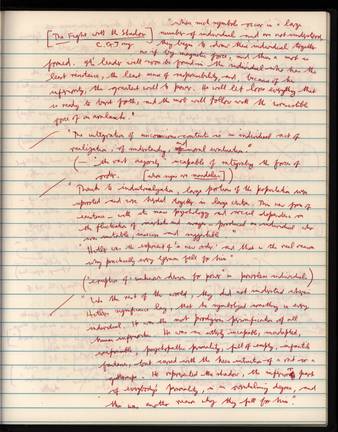 "when such symbols occur in a large
[The Fight with the Shadow] number of individuals and are not understood
C. G. Jung they begin to draw these individuals together
as if by magnetic force, and thus a mob is
formed. Its leader will soon be found in the individual who has the
least resistance, the least sense of responsibility, and, because of his
inferiority, the greatest will to power. He will let loose everything that
is ready to burst forth, and the mob will follow with the irresistible
force of an avalanche."
"The integration of unconscious contents is an individual act of
realization, of understanding, moral evaluation."
(— "the vast majority" incapable of integrating the forces of
order. [also signs as mandalas])
"Thanks to industrialization, large portions of the population were
uprooted and were herded together in large centres. This new form of
existence — with its mass psychology and social dependence on
the fluctuation of markets and wages — produced an individual who
was unstable, insecure and suggestible."
"Hitler was the exponent of 'a new order' and that is the real reason
why practically every German fell for him"
(eruption of unconscious drives for power in powerless individuals)
"Like the rest of the world, they did not understand wherein
Hitler's significance lay, that he symbolized something in every
individual. He was the most prodigious personification of all
human inferiorities. He was an utterly incapable, unadapted,
irresponsible, psychopathic personality, full of empty, infantile
fantasies, but cursed with the keen intuition of a rat or a
guttersnipe. He represented the shadow, the inferior part
of everybody's personality, in an overwhelming degree, and
this was another reason why they fell for him."